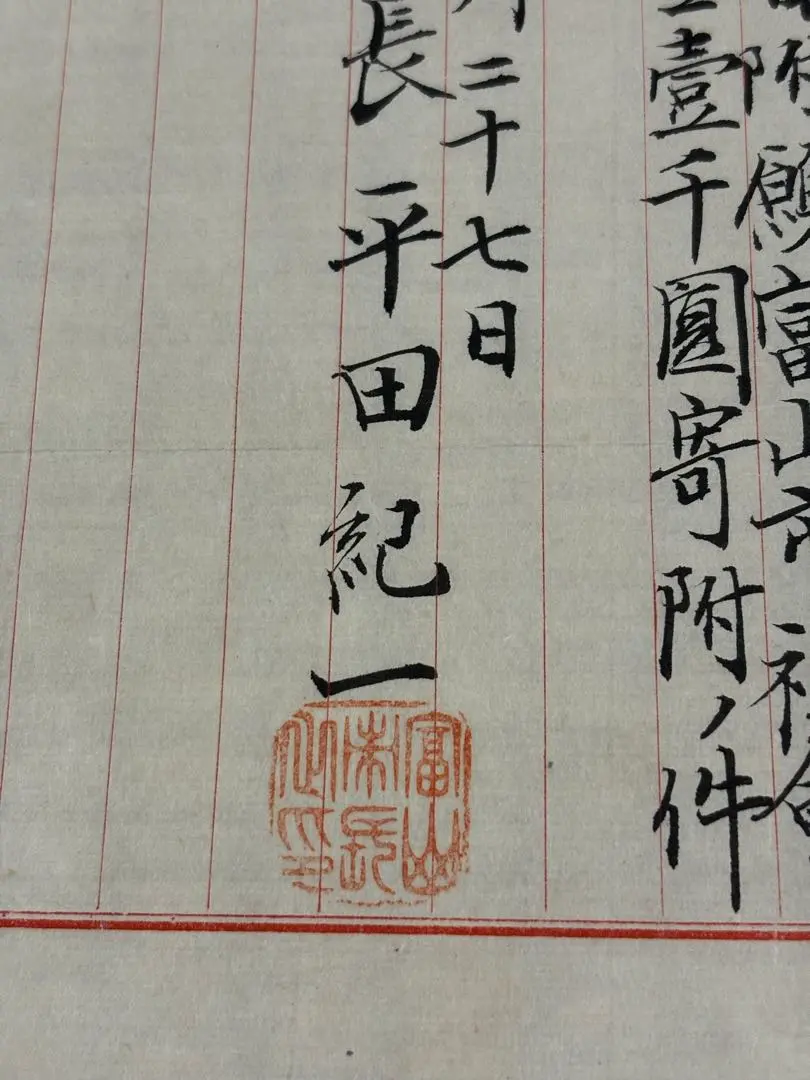 附願富山市
壹千圓寄附ノ件
月二十七日
長平田紀一
富山
市長
之印